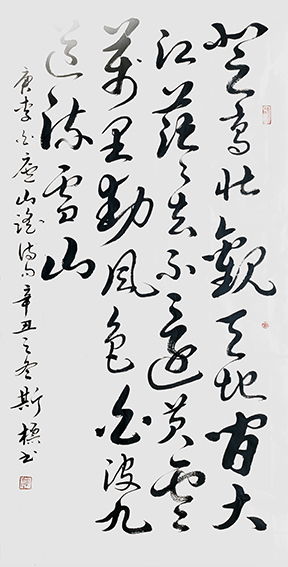 登高壮觀天地間大
江茫々去不還黄雲
萬里動風色白波九
道流雪山
唐李白廬山謠詩句辛丑之冬斯標书